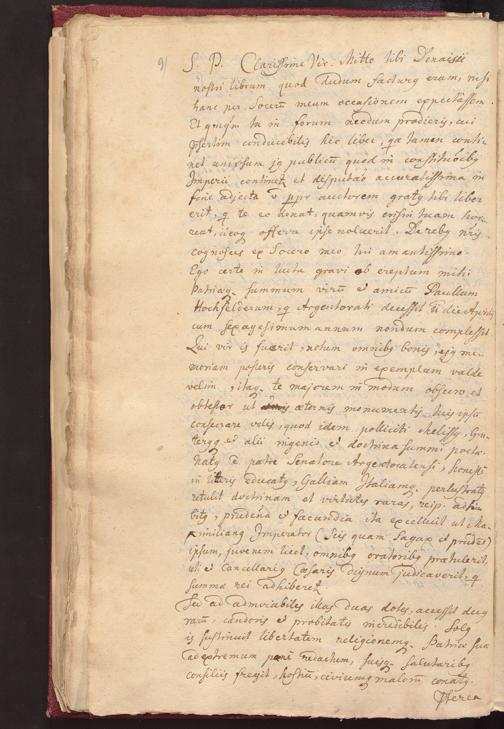 9)
S. P. Clarissime Vir. Mitto tibi Denaisii
nostri librum quod dudum facturus eram, nisi
hanc per Socerum meum occasionem expectassem.
Et quamquam tu in forum nondum prodieris, cui
hic liber, tamen conti-
net universum jus publicum, quod in constitutionibus
Imperii continetur et disputatio accuratissima in
fine adjecta et propter auctorem gratus tibi liber
erit, qui te eo donat, quamvis
offerre ipse noluerit. De rebus nostris
cognosces ex Socero meo tui amantissimo.
Ego certe in luctu gravi ob ereptum mihi
Patriaeque summum virum et amicum Paullum
Hochfelderum, qui Argentorati decessit die Aprilis
cum sexagesimum annum nondum complesset
Qui vir is fuerit, notum omnibus bonis, ejus me-
moriam posteris conservari in exemplum valde
velim, itaque te majorem in modum obsecro et
obtestor ut aeternis monumentis
consecrare velis, quod idem polliciti Melissus, Gru-
terus et alii ingenio et doctrina summi poetae.
Natus e patre Senatore Argentoratensi, honeste
in literis educatus, Galliam Italiamque perlustratus
retulit doctrinam et virtutes raras, reip.
prudentia et facundia ita excelluit ut Ma-
ximilianus Imperator (Scis quam sagax et prudens)
ipsum, juvenem licet, omnibus oratoribus praetulerit,
uti et Cancellarius Caesaris dignum judicaverit, qui
summae rei adhiberetur.
Sed ad admirabiles illas duas dotes, accessit decus
rarum, candoris et probitatis incredibilis. Solus
is sustinuit libertatem religionemque Patriae suae
ad extremum paene redactam, suisque salutaribus
consiliis fregit, hostium, civiumque malorum conatus.
Praeterea